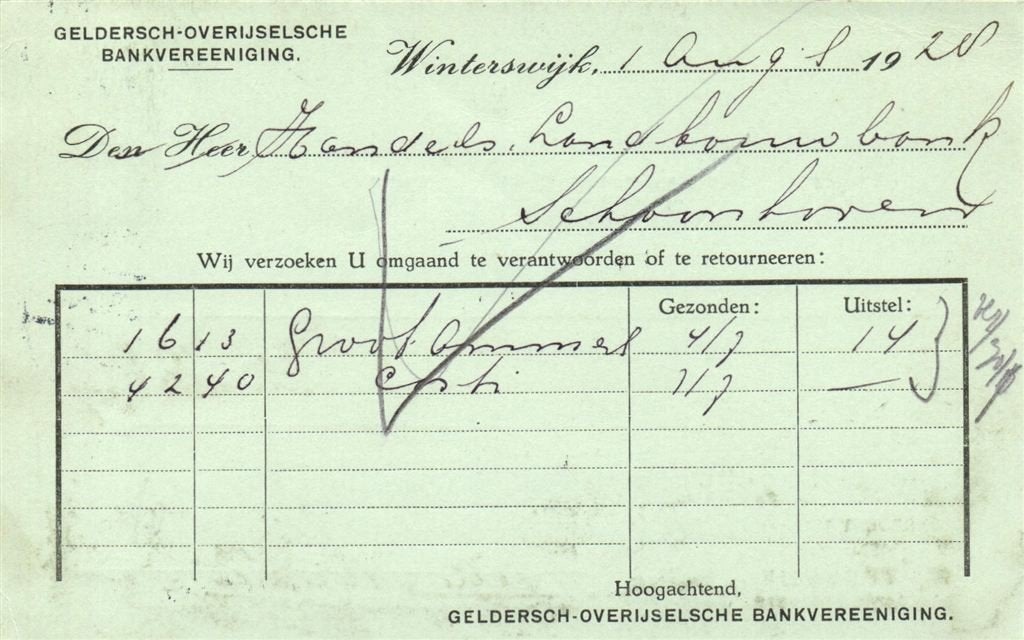 GELDERSCH-OVERIJSELSCHE
BANKVEREENIGING.
Winterswijk, 1 Aug 1928
Den Heer Handels. Landbouwbank
Schoonhoven
Wij verzoeken U omgaand te verantwoorden of te retourneeren:
Gezonden: Uitstel:
16 13 Groot Ammers 4/7 14
42 40 —
Hoogachtend,
GELDERSCH-OVERIJSELSCHE BANKVEREENIGING.